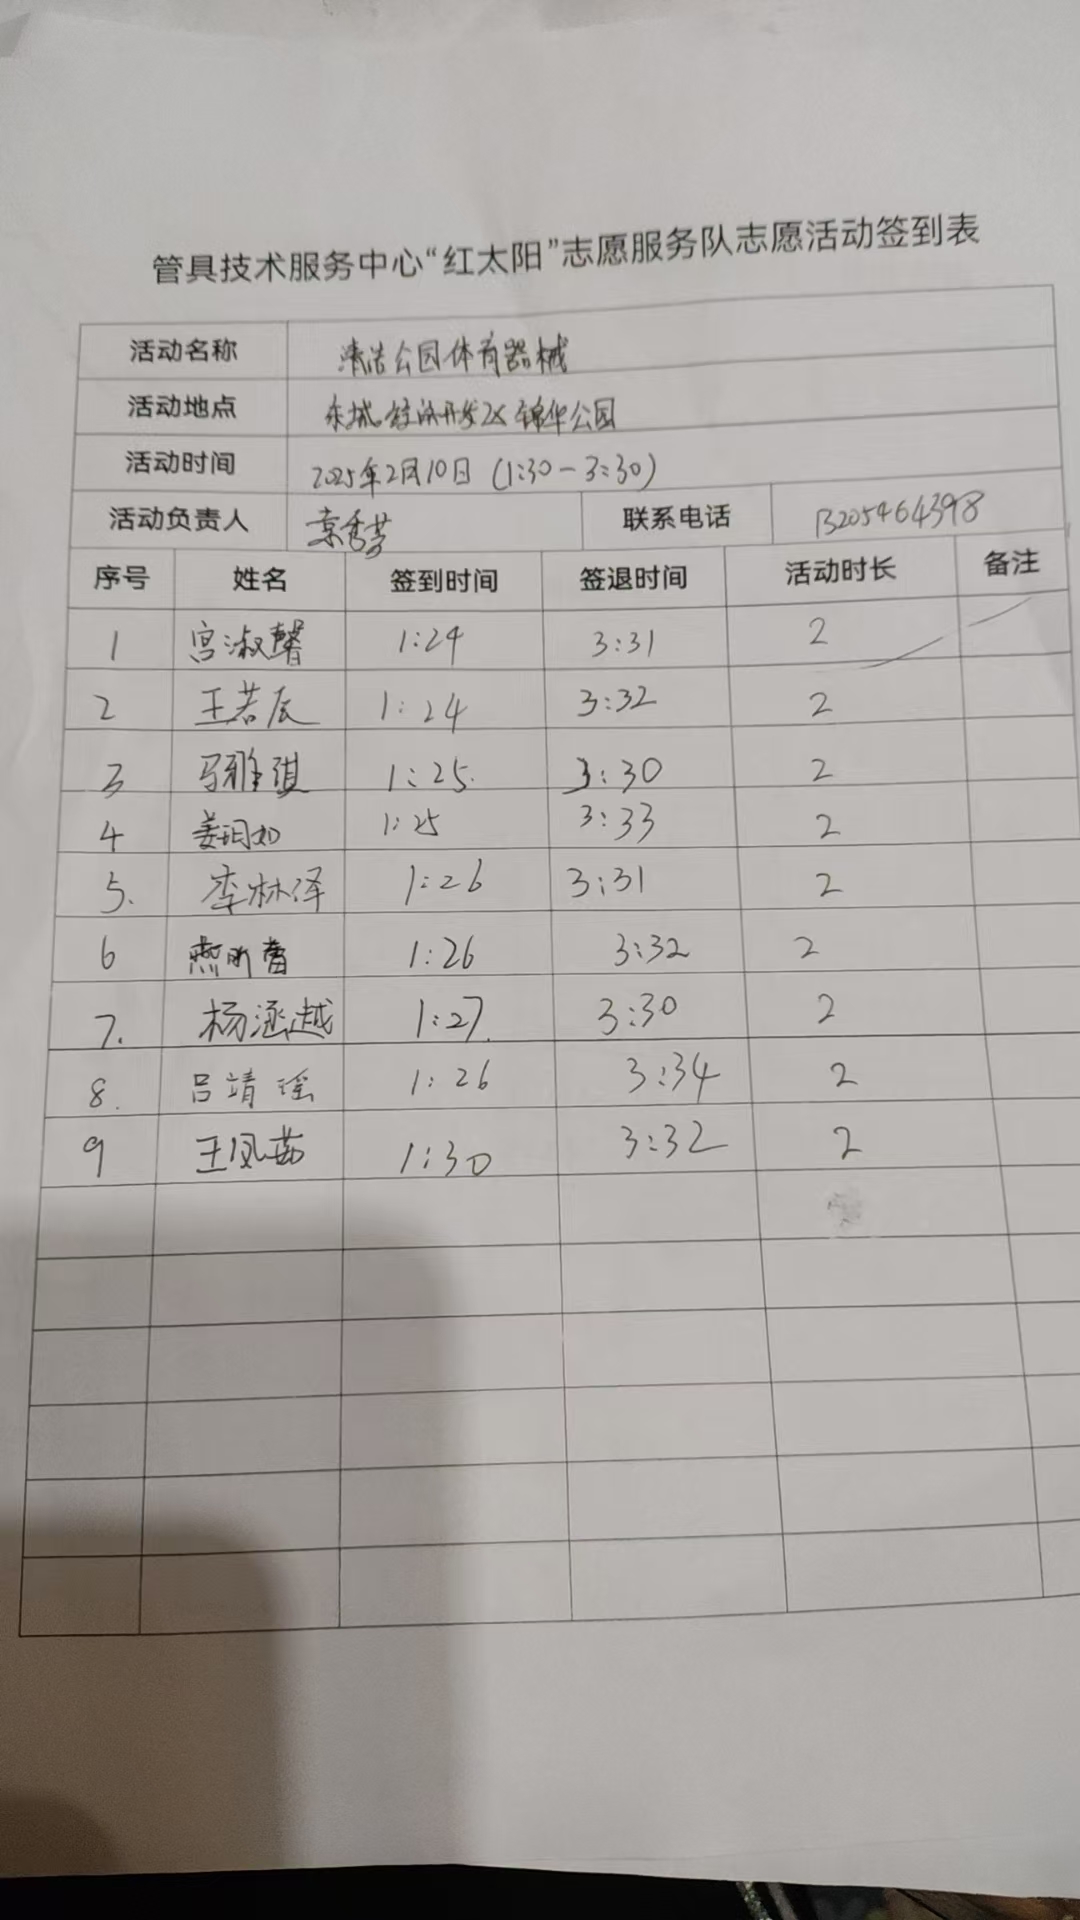 管具技术服务中心“红太阳”志愿服务队志愿活动签到表
活动名称 清洁公园体育器械
活动地点 东城经济开发区锦华公园
活动时间 2025年2月10日(1:30-3:30)
活动负责人 景秀芳 联系电话 13205464398
序号 姓名 签到时间 签退时间 活动时长 备注
1 宫淑馨 1:24 3:31 2
2 王若辰 1:24 3:32 2
3 马雅琪 1:25. 3:30 2
4 姜玥如 1:25 3:33 2
5. 李林泽 1:26 3:31 2
6 燕昕蕾 1:26 3:32 2
7. 杨涵越 1:27. 3:30 2
8. 吕靖瑶 1:26 3:34 2
9 王凤茹 1:30 3:32 2